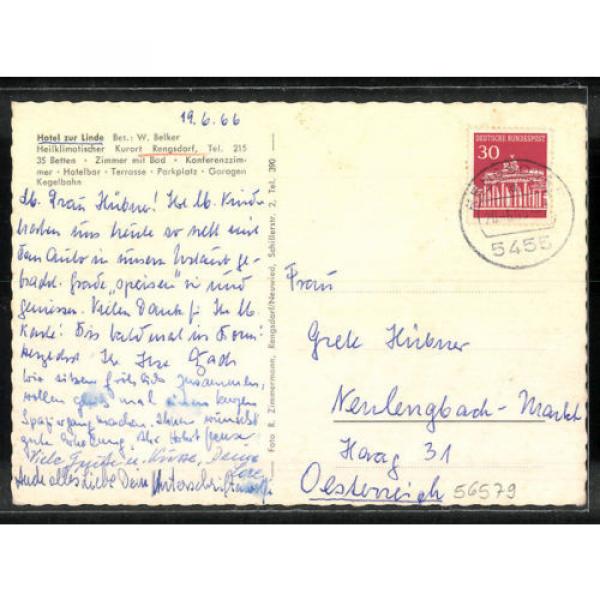 19.6.66
Hotel zur Linde Bes.: W. Belker
Heilklimatischer Kurort Rengsdorf, Tel. 215
35 Betten · Zimmer mit Bad · Konferenzzim-
mer · Hotelbar · Terrasse · Parkplatz · Garagen
Kegelbahn
Lb. Frau Hübner! Ihr lb. Kinder
haben uns heute so nett mit
dem Auto in unsern Urlaub ge-
bracht. Grade „speisen" wir und
geniessen. Vielen Dank f. Ihr lb.
Karte! Bis bald mal in
Herzlichst Ihr
Wir sitzen fröhlich zusammen,
wollen gleich mal einen kurzen
Spaziergang machen. Ihnen wünscht
gute Erholung, Ihr
Viele Grüße u. Küsse, Deine
Auch alles Liebe Dein
Foto R. Zimmermann, Rengsdorf/Neuwied, Schillerstr. 2, Tel. 390
DEUTSCHE BUNDESPOST
30
5455
Frau
Grete Hübner
Neulengbach-Markt
Haag 31
Oesterreich
56579